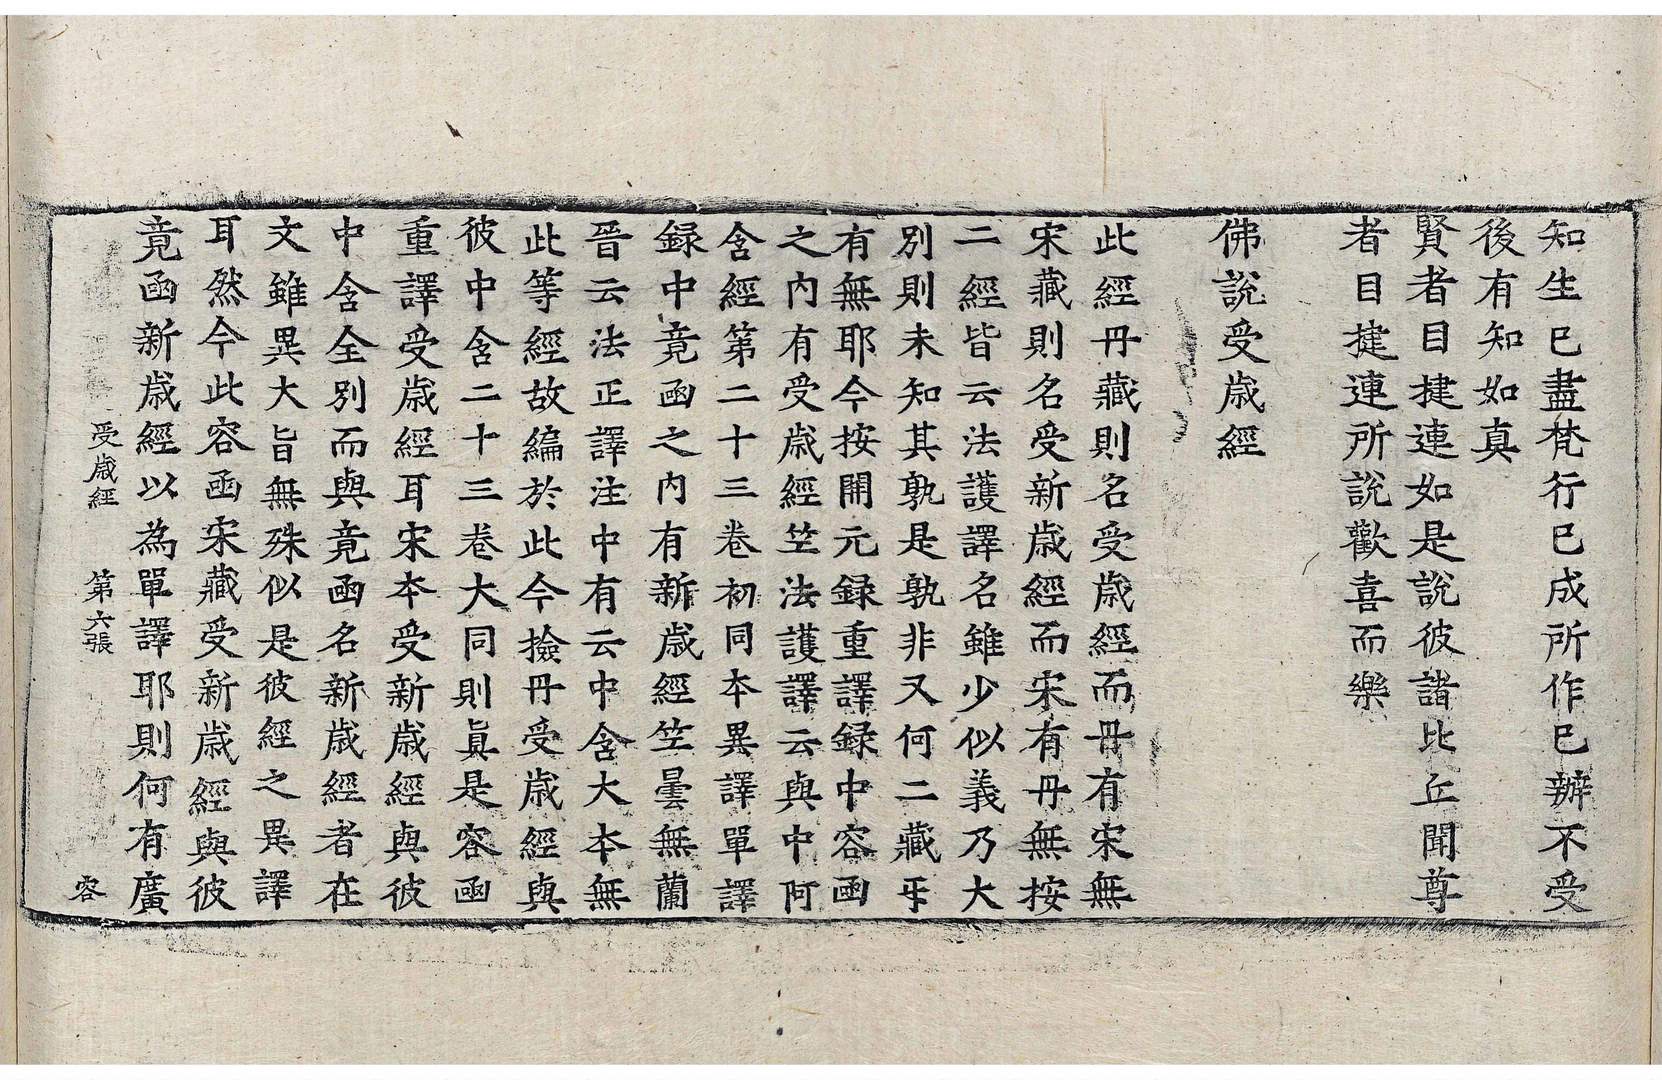 知生已盡梵行已成所作已辦不受
後有知如真
賢者目揵連如是說彼諸比丘聞尊
者目揵連所說歡喜而樂
佛說受歲經
此經丹藏則名受歲經而丹有宋無
宋藏則名受新歲經而宋有丹無按
二經皆云法護譯名雖少似義乃大
別則未知其孰是孰非又何二藏牙
有無耶今按開元錄重譯錄中容函
之內有受歲經竺法護譯云與中阿
含經第二十三卷初同本異譯單譯
錄中竟函之內有新歲經竺曇無蘭
晉云法正譯注中有云中含大本無
此等經故編於此今撿丹受歲經與
彼中含二十三卷大同則真是容函
重譯受歲經耳宋本受新歲經與彼
中含全別而與竟函名新歲經者在
文雖異大旨無殊似是彼經之異譯
耳然今此容函宋藏受新歲經與彼
竟函新歲經以為單譯耶則何有廣
受歲經 第六張 容